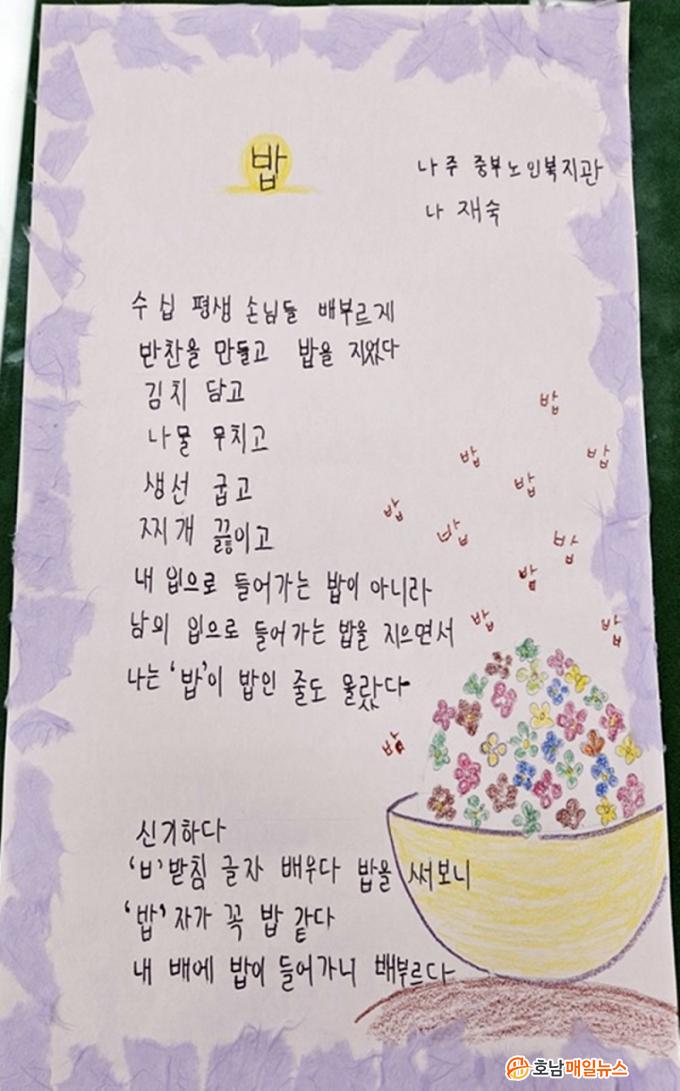 밥
나주 중부노인복지관
나 재숙
수십 평생 손님들 배부르게
반찬을 만들고 밥을 지었다
김치 담고
나물 무치고
생선 굽고
찌개 끓이고
내 입으로 들어가는 밥이 아니라
남의 입으로 들어가는 밥을 지으면서
나는 '밥'이 밥인 줄도 몰랐다
밥
밥
밥
밥
밥
밥
밥
밥
밥
밥
밥
신기하다
'ㅂ'받침 글자 배우다 밥을 써보니
'밥'자가 꼭 밥 같다
내 배에 밥이 들어가니 배부르다
호남매일뉴스